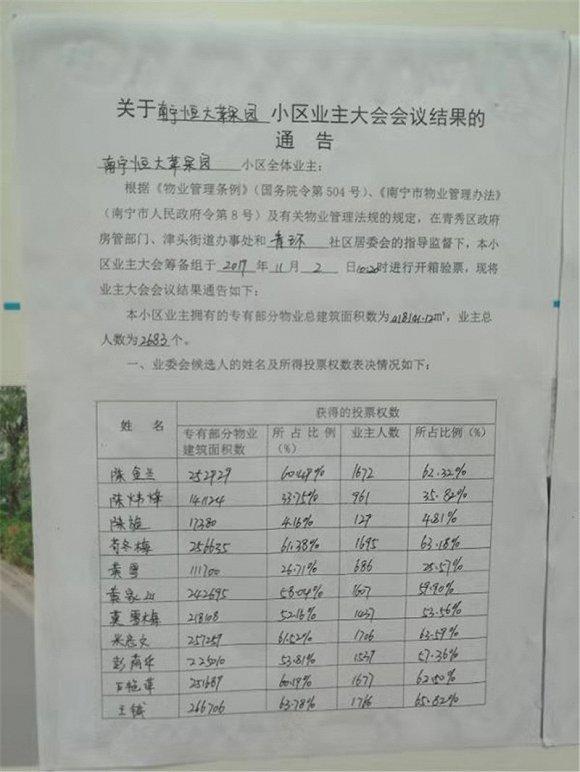 关于南宁恒大苹果园小区业主大会会议结果的
通 告
南宁恒大苹果园 小区全体业主：
根据《物业管理条例》（国务院令第504号）、《南宁市物业管理办法》
（南宁市人民政府令第8号）及有关物业管理法规的规定，在青秀区政府
房管部门、津头街道办事处和 青环 社区居委会的指导监督下，本小
区业主大会筹备组于 2017 年 11 月 2 日 时进行开箱验票，现将
业主大会会议结果通告如下：
本小区业主拥有的专有部分物业总建筑面积数为 m²，业主总
人数为2683个。
一、业委会候选人的姓名及所得投票权数表决情况如下：
姓 名 获得的投票权数
专有部分物业 所占比例 业主人数 所占比例（%）
建筑面积数 （%）
陈金兰 252929 60.49% 1672 62.32%
陈炜烽 141124 33.75% 961 35.82%
陈旋 17380 4.16% 129 4.81%
冬梅 256635 61.38% 1695 63.18%
黄 111700 26.71% 686 25.57%
黄家 242695 58.04% 1607 59.90%
莫雪梅 218108 52.16% 1437 53.56%
257259 61.52% 1706 63.59%
彭 225010 53.81% 1539 57.36%
251689 60.19% 1677 62.50%
王 266706 63.78% 1766 65.82%